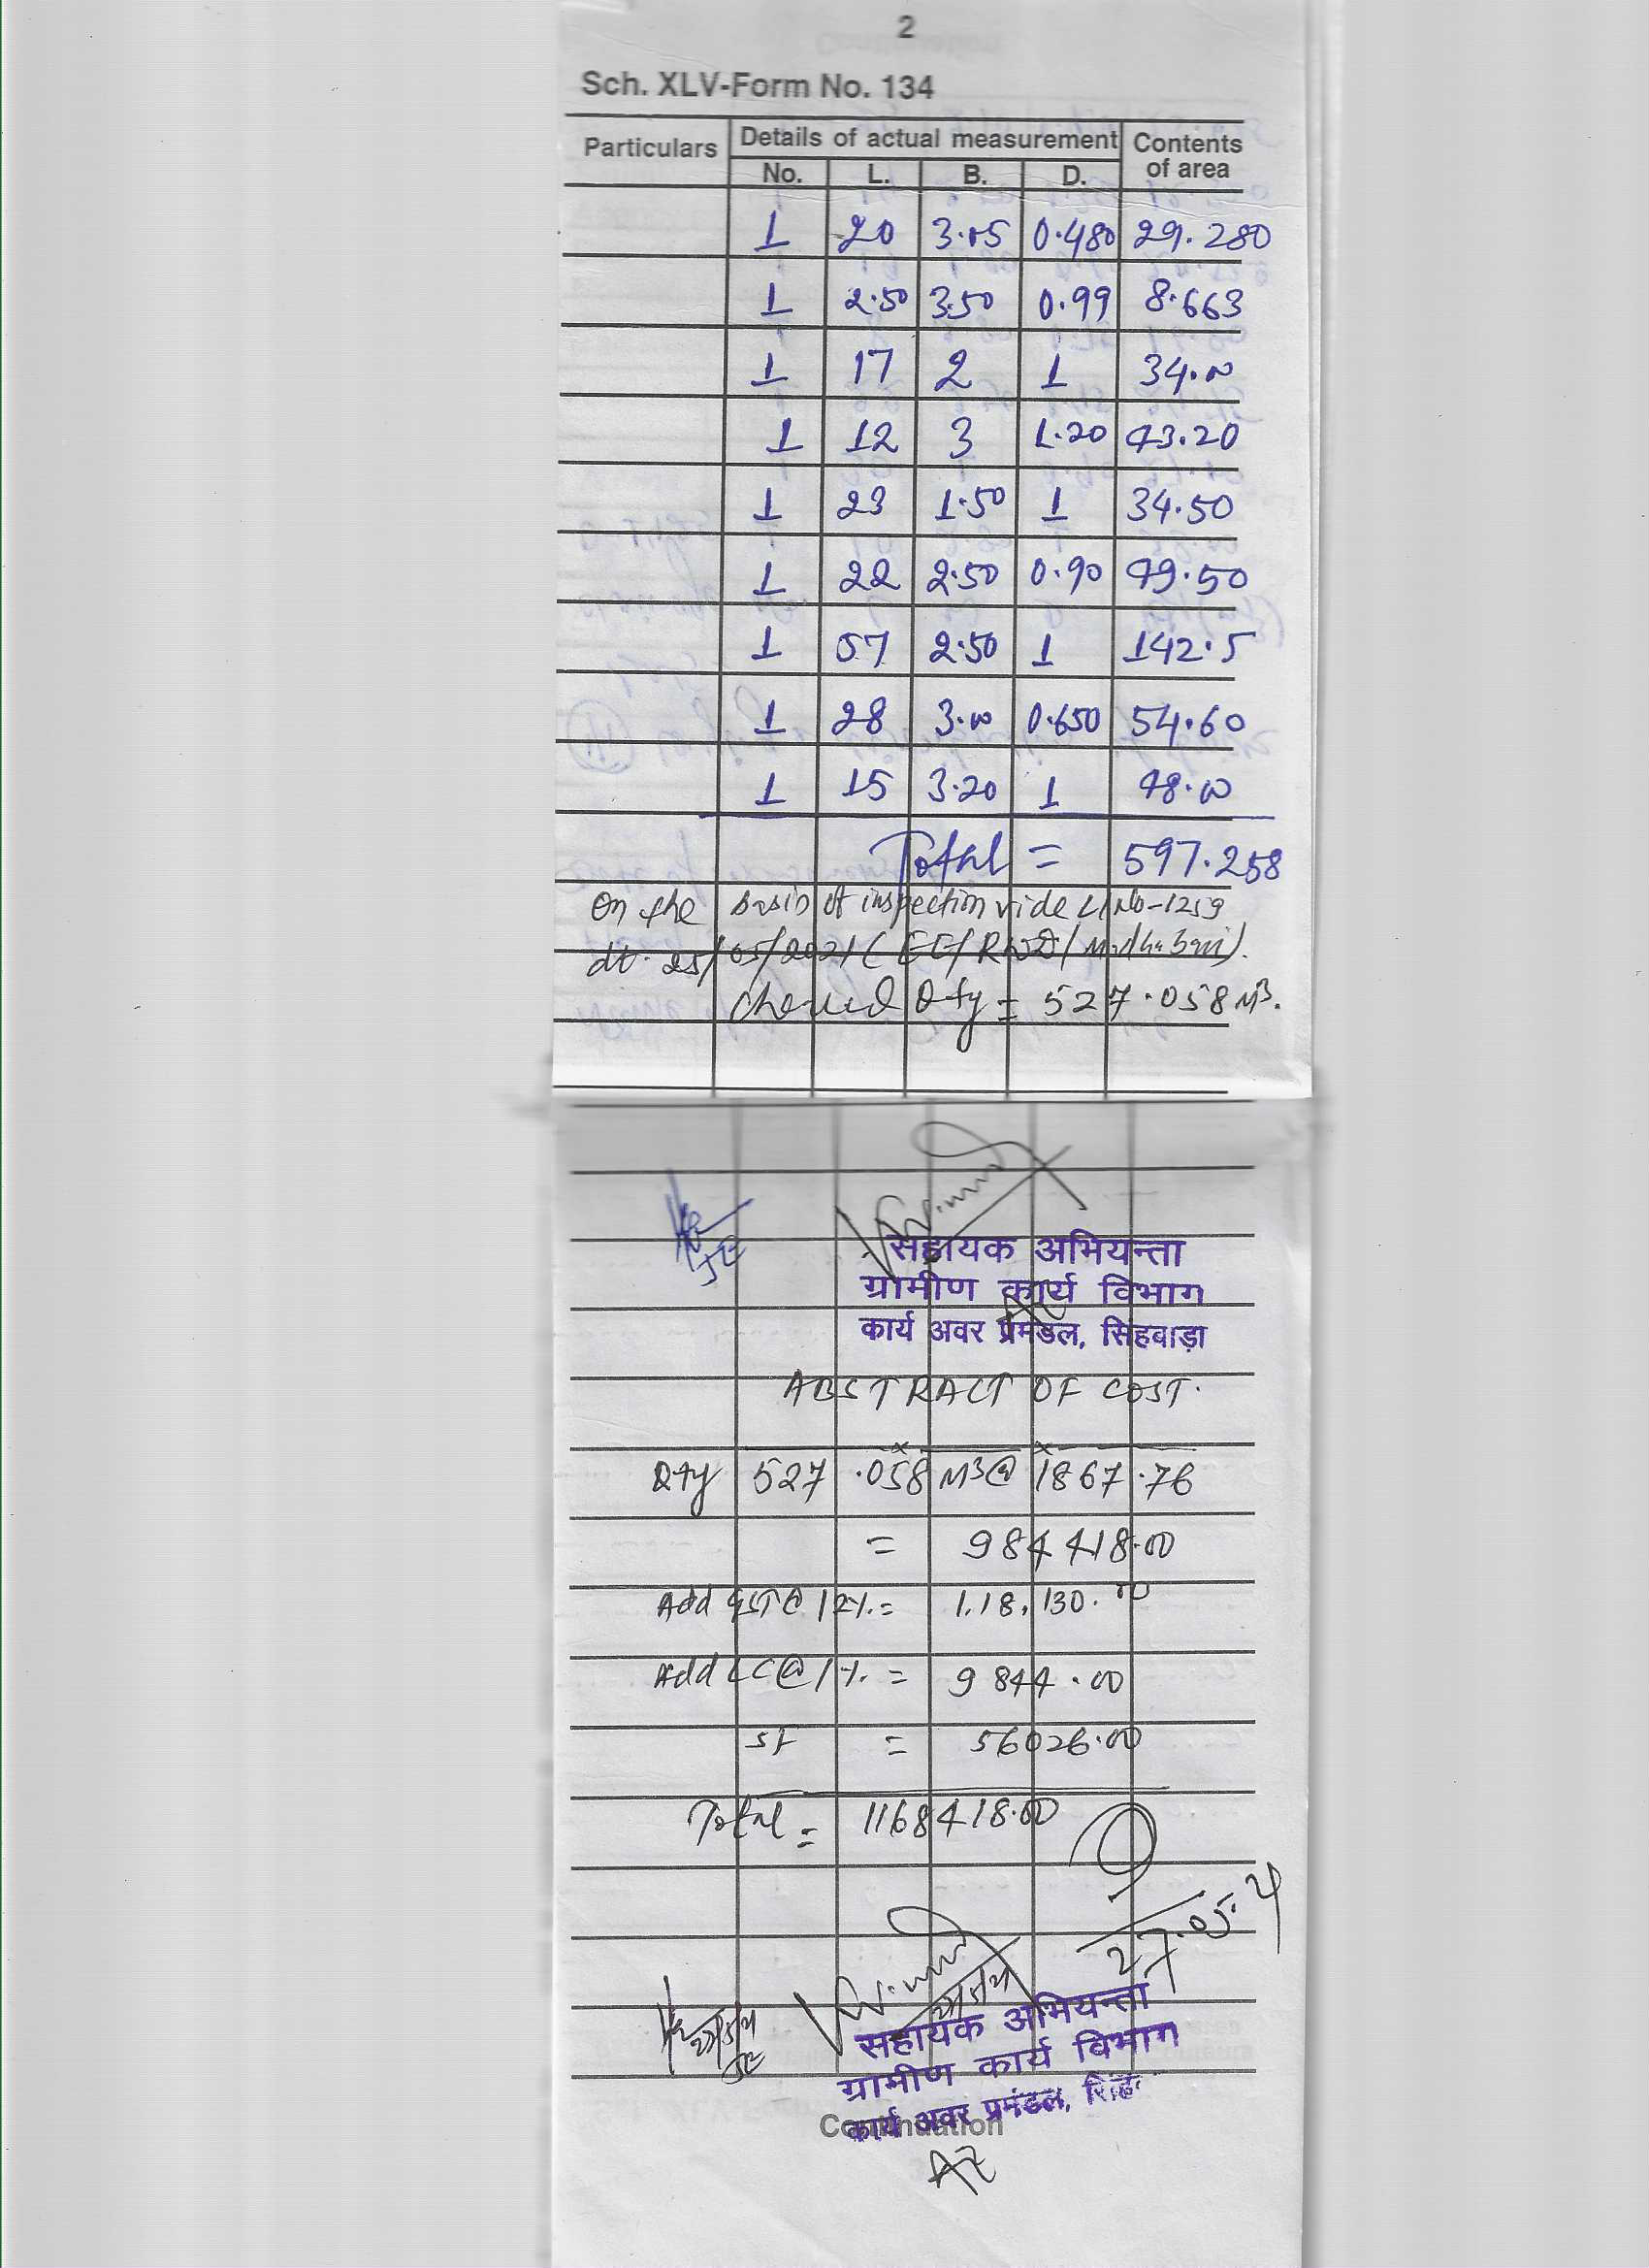 2
Sch. XLV-Form No. 134
Particulars Details of actual measurement Contents of area
No. L. B. D.
1 20 3.05 0.480 29.280
1 2.50 3.50 0.99 8.663
1 17 2 1 34.00
1 12 3 1.20 43.20
1 23 1.50 1 34.50
1 22 2.50 0.90 49.50
1 57 2.50 1 142.5
1 28 3.00 0.650 54.60
1 15 3.20 1 48.00
Total = 597.258
On the basis of inspection vide L/No-1259
dt. 25/05/2021 (EE/RWD/Madhubani).
Qty = 527.058 M3.
JE
सहायक अभियन्ता
ग्रामीण कार्य विभाग
कार्य अवर प्रमंडल, सिंहवाड़ा
ABSTRACT OF COST.
Qty 527.058 M3 @ 1867.76
= 984418.00
Add GST @ 12%. = 1,18,130.00
Add LC @ 1%. = 9844.00
SF = 56026.00
Total = 1168418.00
27.05.21
JE
सहायक अभियन्ता
ग्रामीण कार्य विभाग
कार्य अवर प्रमंडल, सिंह
Continuation
AE